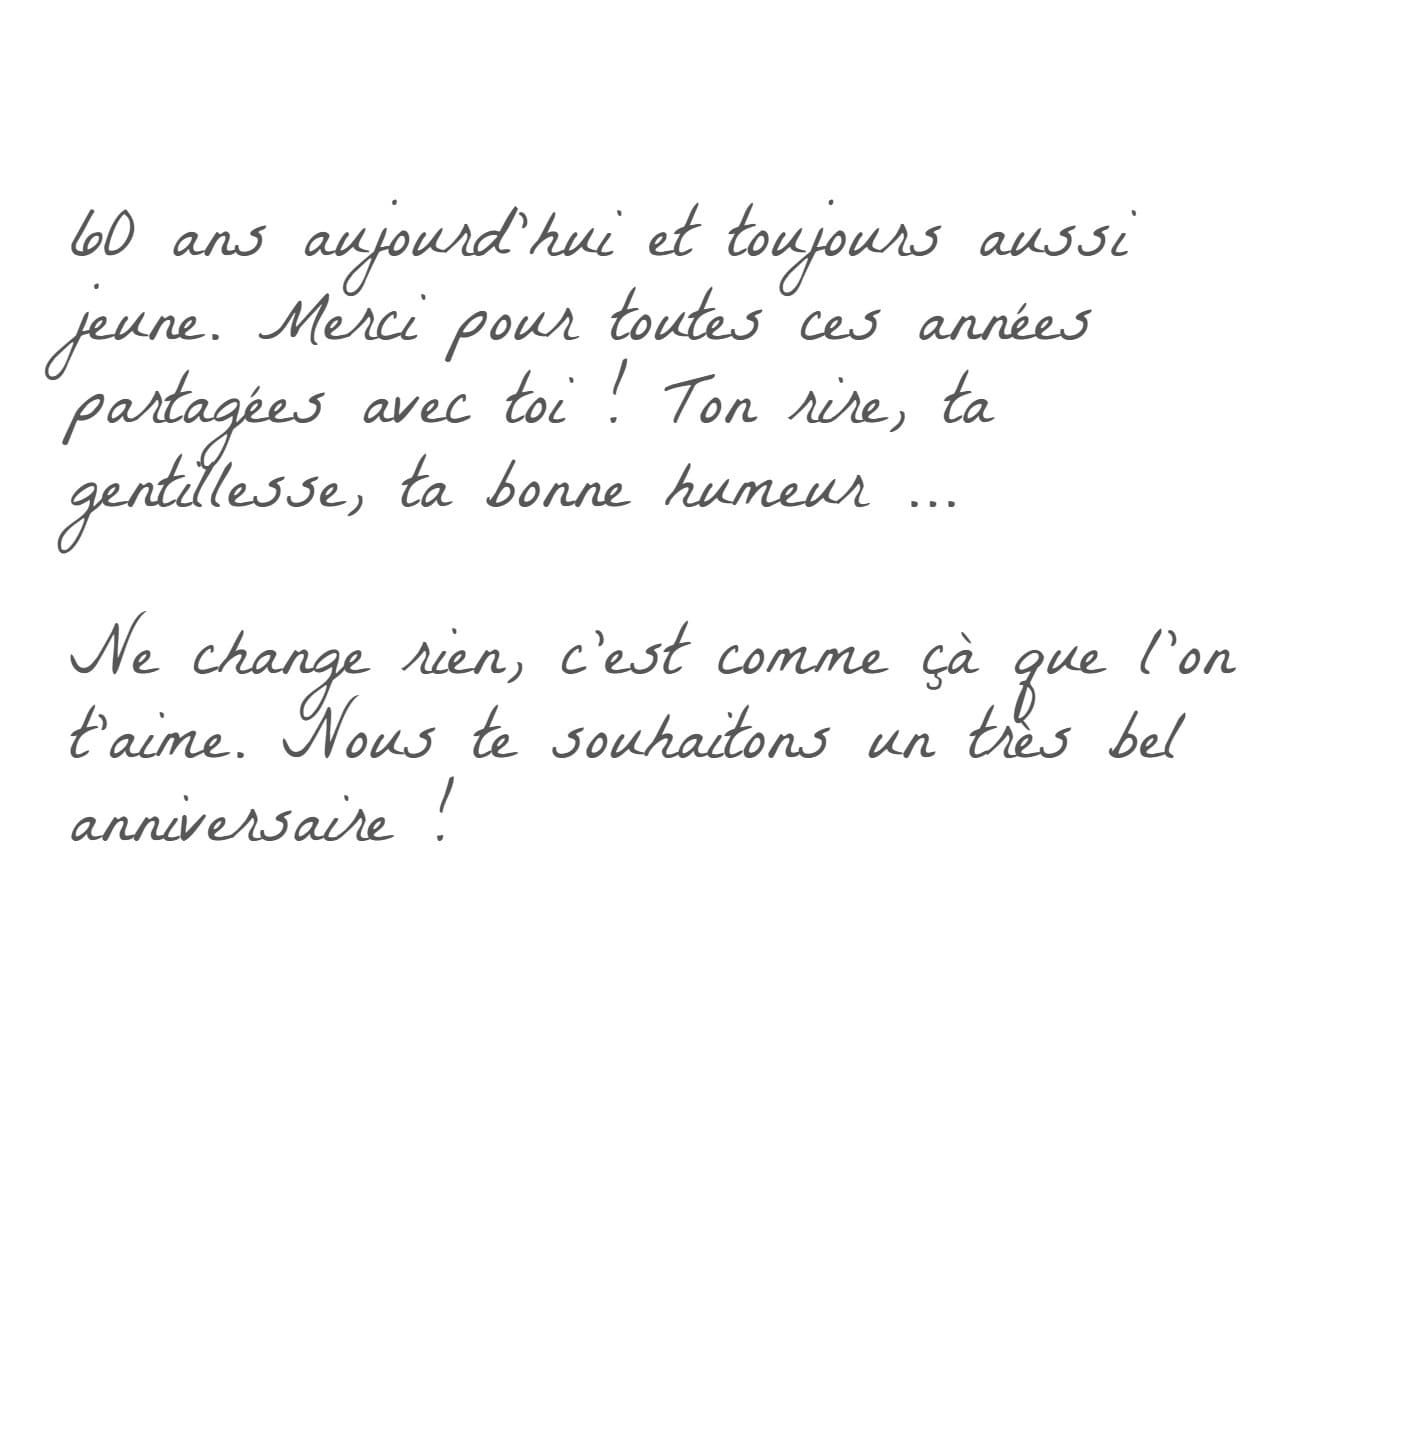 60 ans aujourd'hui et toujours aussi
jeune. Merci pour toutes ces années
partagées avec toi ! Ton rire, ta
gentillesse, ta bonne humeur ...
Ne change rien, c'est comme çà que l'on
t'aime. Nous te souhaitons un très bel
anniversaire !